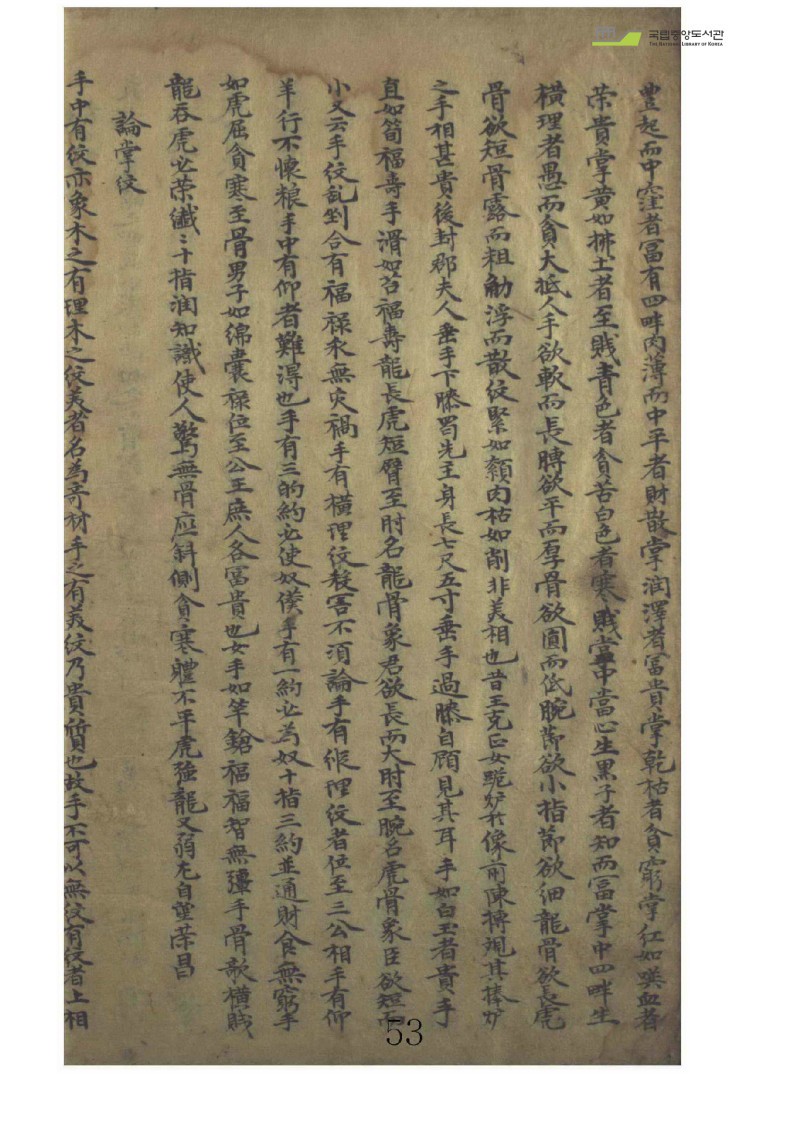 豊起而中窪者冨有四畔肉薄而中平者財散掌润澤者冨貴掌乾枯者貧窮掌仁如噀血者
荣貴掌黄如拂土者至賎青色者貧苦白色者寒賎掌中當心生黒子者知而冨掌中四畔生
横理者愚而貧大抵人手欲軟而長膊欲平而厚骨欲圓而低腕莭欲小指莭欲细龍骨欲長虎
骨欲短骨露而粗觔浮而散纹緊如纇肉枯如削非美相也昔王克正女跪炉於像前陳摶覘其捧炉
之手相甚貴後封郡夫人垂手下膝蜀先主身長七尺五寸垂手過膝自顧見其耳手如白玉者貴手
直如筍福壽手滑如苔福壽龍長虎短臂至肘名龍骨象君欲長而大肘至腕名虎骨象臣欲短而
小又云手纹乱剉合有福禄永無灾禍手有横理纹殺害不湏論手有縱理纹者位至三公相手有仰
羊行不懐粮手中有仰者難淂也手有三的約必使奴僕手有一約必為奴十指三約並通財食無窮手
如虎屈貧寒至骨男子如綿囊禄位至公王庶人各冨貴也女手如竿鎗福福智無彊手骨欹横賎
龍吞虎必荣纎〻十指润知識使人驚無骨应斜側貪寒體不平虎強龍又弱尢自望荣昌
論掌纹
手中有纹亦象木之有理木之纹美者名為竒材手之有美纹乃貴質也故手不可以無纹有纹者上相
53
국립중앙도서관
THE NATIONAL LIBRARY OF KOREA